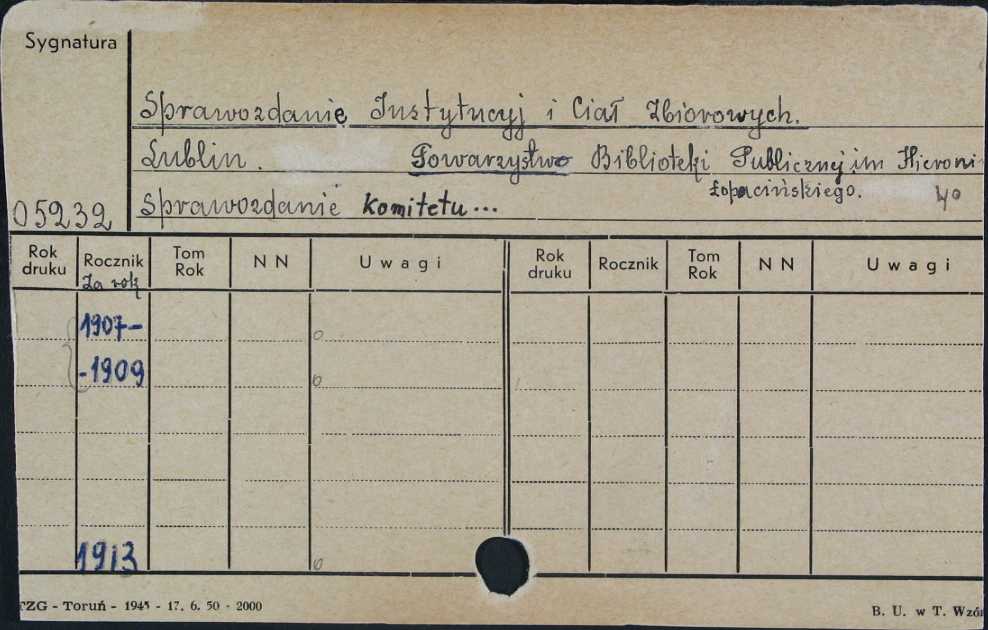 Sygnatura
Sprawozdanie Instytucyj i Ciał Zbiorowych.
Lublin. Towarzystwo Biblioteki Publicznej im Hieroni
Łopacińskiego. 4o
05232 Sprawozdanie komitetu...
Rok druku Rocznik Tom Rok N N Uwagi Rok druku Rocznik Tom Rok N N Uwagi
Za rok
1907- o
-1909 o
1913 o
TZG - Toruń - 1945 - 17. 6. 50 - 2000 B. U. w T. Wzór